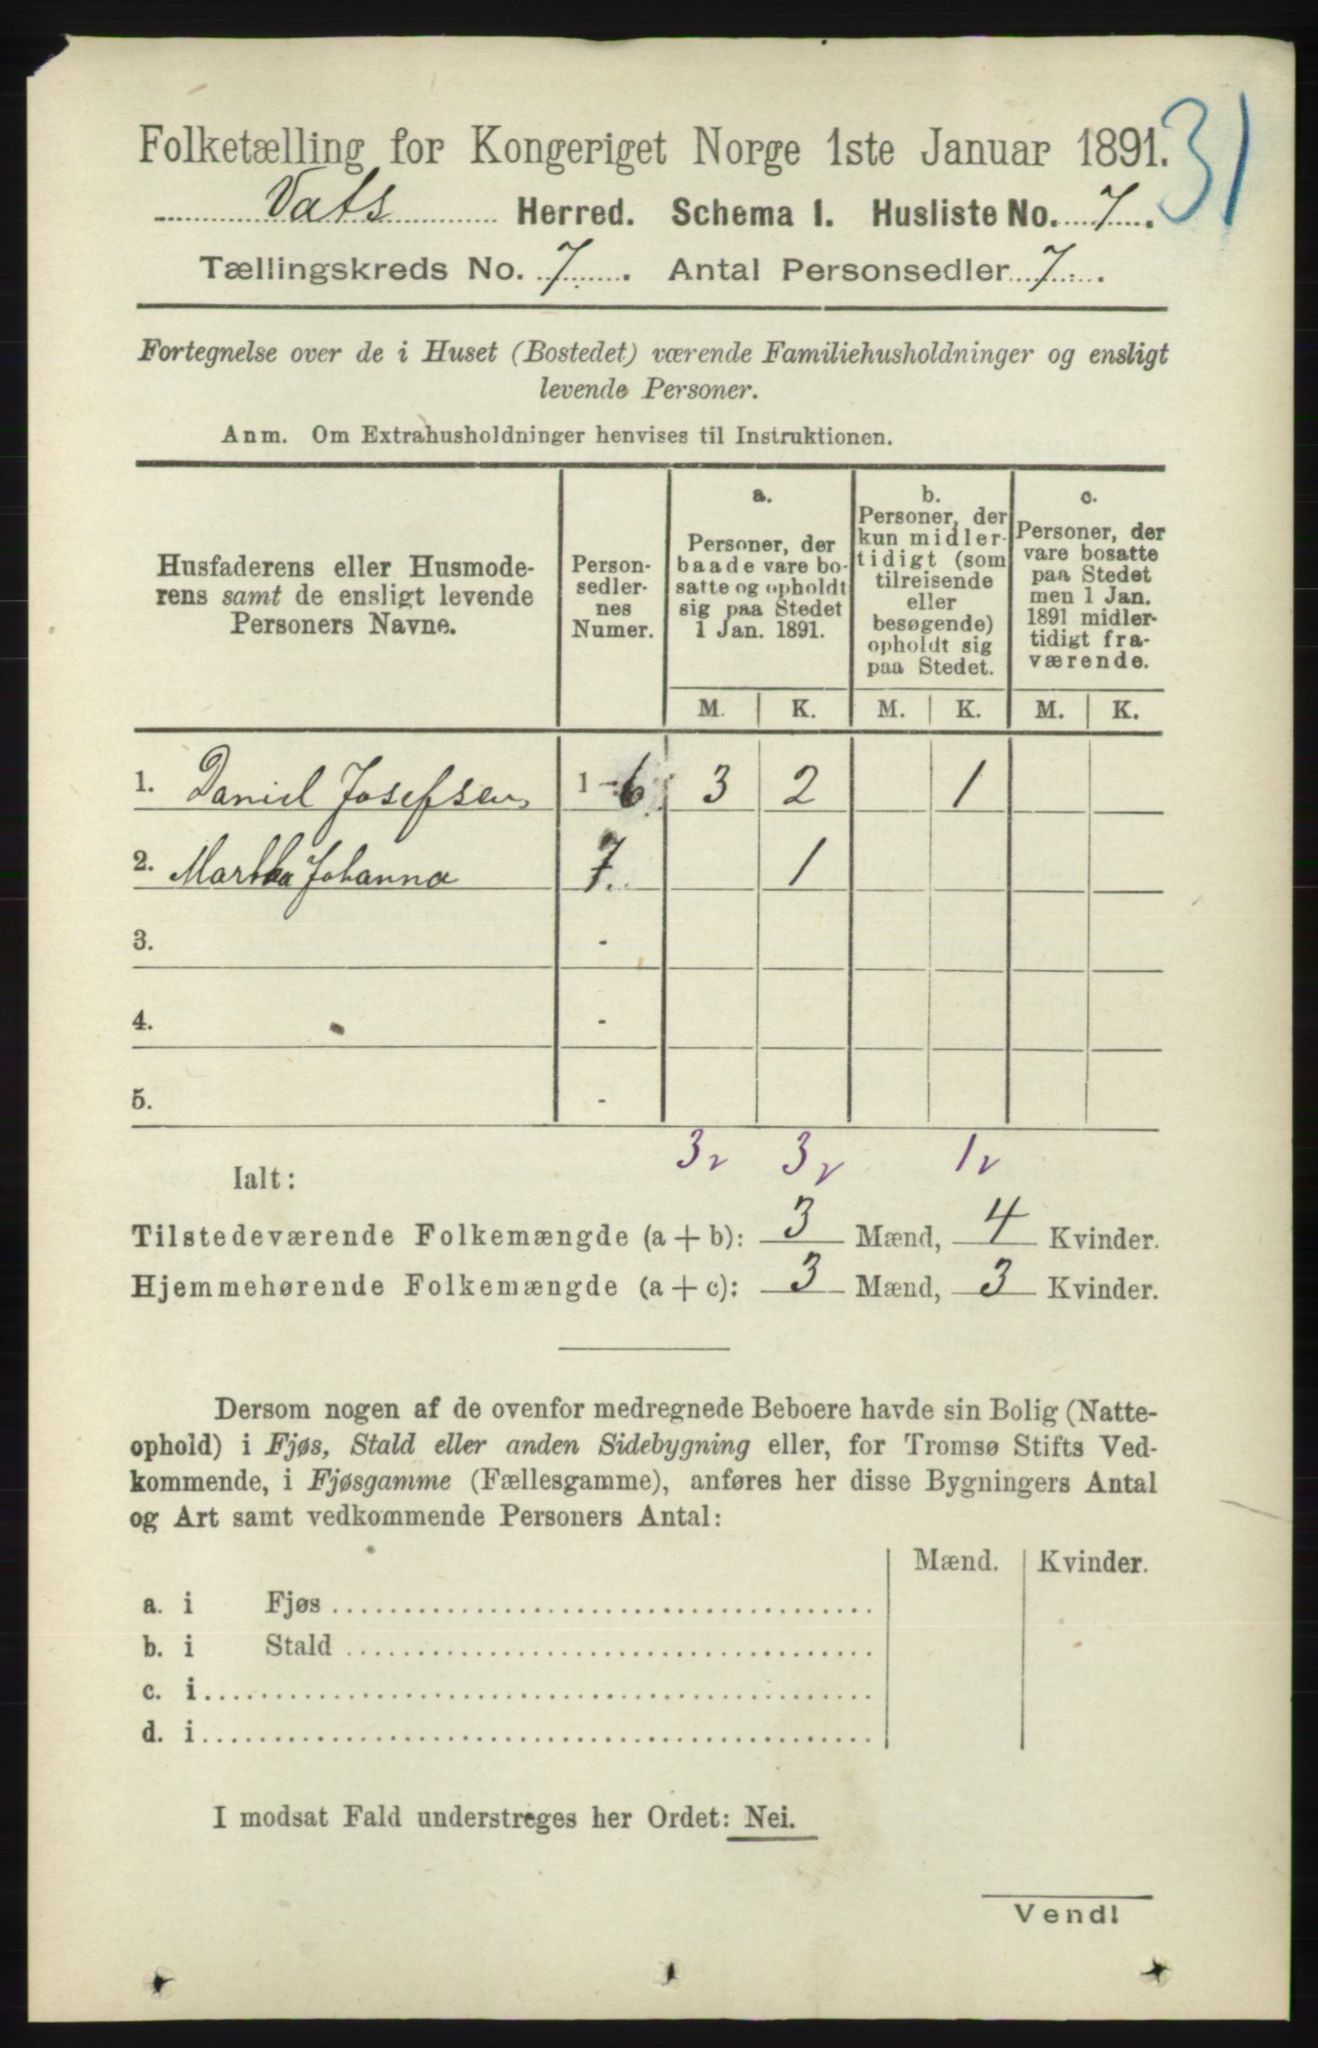 31
Folketælling for Kongeriget Norge 1ste Januar 1891.
Vats Herred. Schema 1. Husliste No. 7.
Tællingskreds No. 7. Antal Personsedler 7.
Fortegnelse over de i Huset (Bostedet) værende Familiehusholdninger og ensligt
levende Personer.
Anm. Om Extrahusholdninger henvises til Instruktionen.
Husfaderens eller Husmode-
rens samt de ensligt levende
Personers Navne.
Person-
sedler-
nes
Numer.
a.
Personer, der
baade vare bo-
satte og opholdt
sig paa Stedet
1 Jan. 1891.
b.
Personer, der
kun midler-
tidigt (som
tilreisende
eller
besøgende)
opholdt sig
paa Stedet.
c.
Personer, der
vare bosatte
paa Stedet
men 1 Jan.
1891 midler-
tidigt fra-
værende.
M. K. M. K. M. K.
1. Daniel Josefsen 1-6 3 2 1
2. Martha Johanna 7. 1
3. -
4. -
5. -
3v 3v 1v
Ialt:
Tilstedeværende Folkemængde (a + b): 3 Mænd, 4 Kvinder.
Hjemmehørende Folkemængde (a + c): 3 Mænd, 3 Kvinder.
Dersom nogen af de ovenfor medregnede Beboere havde sin Bolig (Natte-
ophold) i Fjøs, Stald eller anden Sidebygning eller, for Tromsø Stifts Ved-
kommende, i Fjøsgamme (Fællesgamme), anføres her disse Bygningers Antal
og Art samt vedkommende Personers Antal:
Mænd. Kvinder.
a. i Fjøs
b. i Stald
c. i
d. i
I modsat Fald understreges her Ordet: Nei.
Vend!